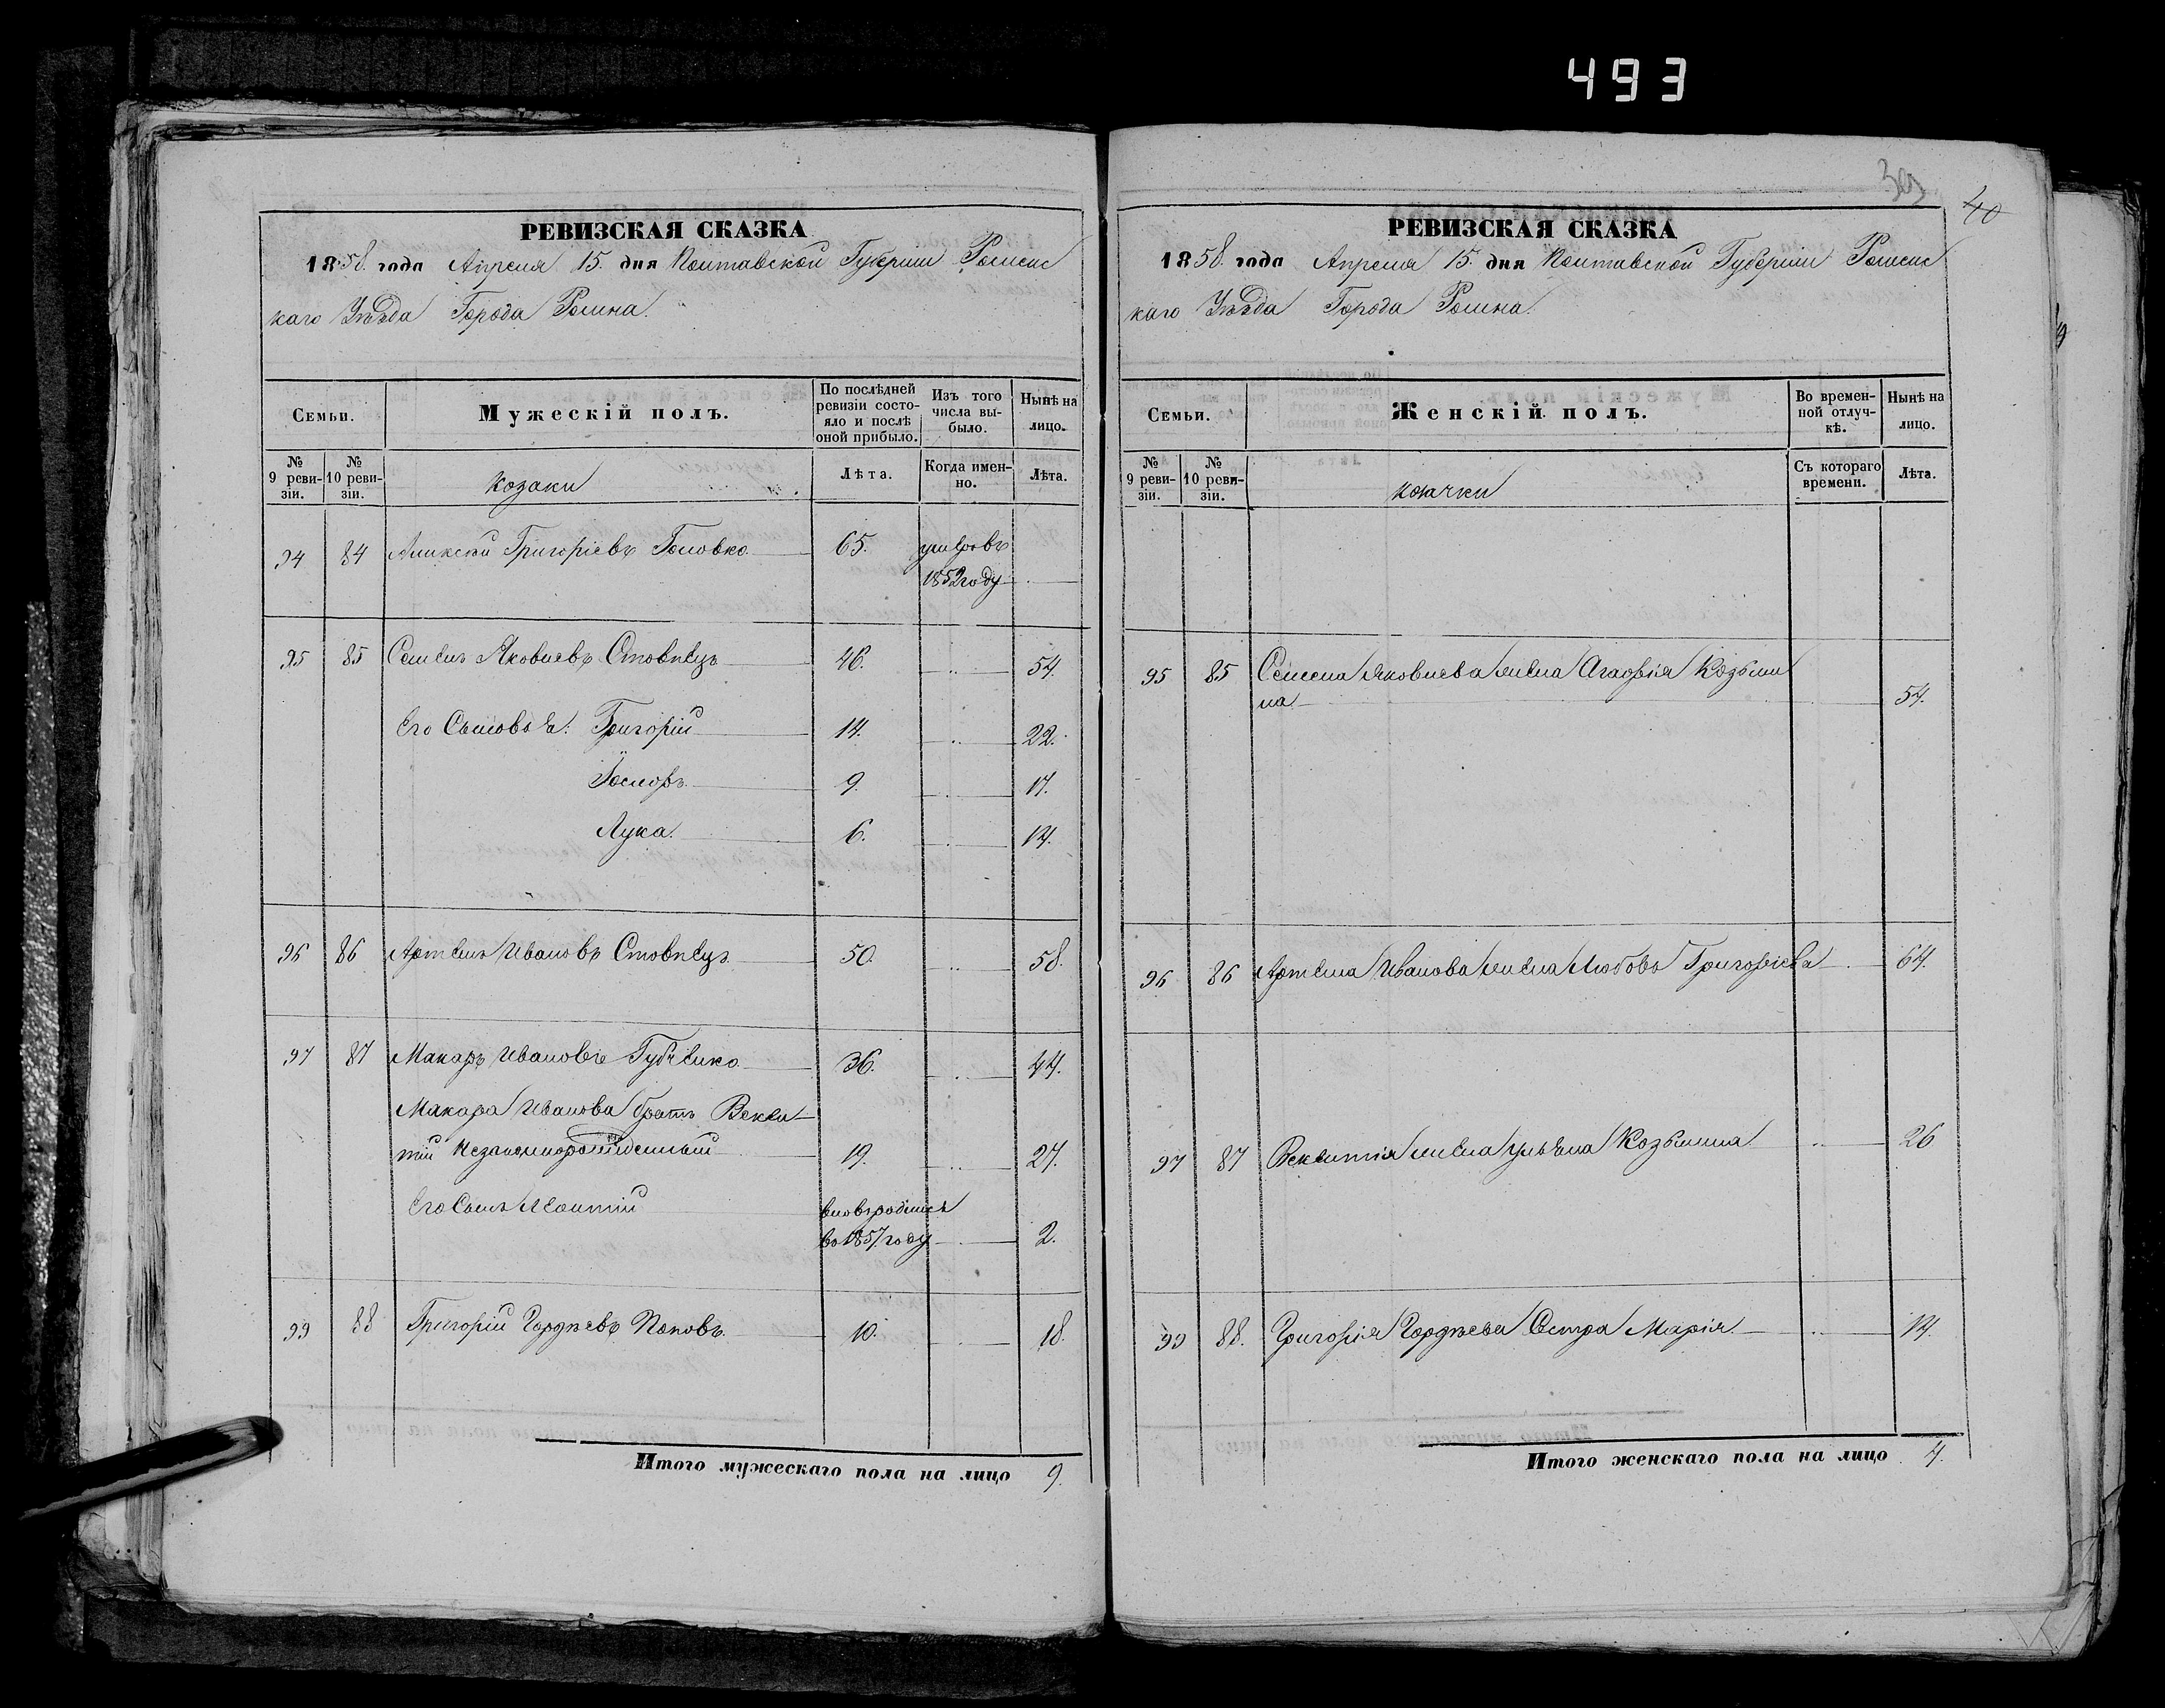 493
39
40
РЕВИЗСКАЯ СКАЗКА
1858. года Апреля 15. дня Полтавской Губерніи Роменс
каго Уѣзда Города Ромна.
Семьи.
Мужескій полъ.
По послѣдней ревизіи состояло и послѣ оной прибыло.
Изъ того числа выбыло.
Нынѣ на лицо.
№ 9 ревизіи.
№ 10 ревизіи.
козаки
Лѣта.
Когда именно.
Лѣта.
94 84 Аликсѣй Григоріевъ Головко 65. умеръ въ
1852 году
95 85 Семенъ Яковлевъ Стовпецъ 46. 54.
Его Сыновья: Григорій 14. 22.
9. 17.
Лука. 6. 14.
96 86 Артемъ Ивановъ Стовпецъ 50. 58.
97 87 Макаръ Ивановъ Губченко 36. 44.
Макара Иванова братъ Викен
тій Незаконнорожденный 19. 27.
Его Сынъ Леонтій вновь родился
во 1857 году 2.
99 88 Григорій Гордѣевъ Поповъ. 10. 18
Итого мужескаго пола на лицо 9.
РЕВИЗСКАЯ СКАЗКА
1858. года Апреля 15. дня Полтавской Губерніи Роменс
каго Уѣзда Города Ромна.
Семьи.
Женскій полъ.
Во временной отлучкѣ.
Нынѣ на лицо.
№ 9 ревизіи.
№ 10 ревизіи.
козачки
Съ котораго времени.
Лѣта.
95 85 Семена Яковлева жена Агафія Козьми
на 54.
96 86 Артема Иванова жена Любовь Григоріева 64.
97 87 жена Ульяна Козьмина 26
99 88. Григорія Гордѣева Сестра Марія. 14.
Итого женскаго пола на лицо 4.